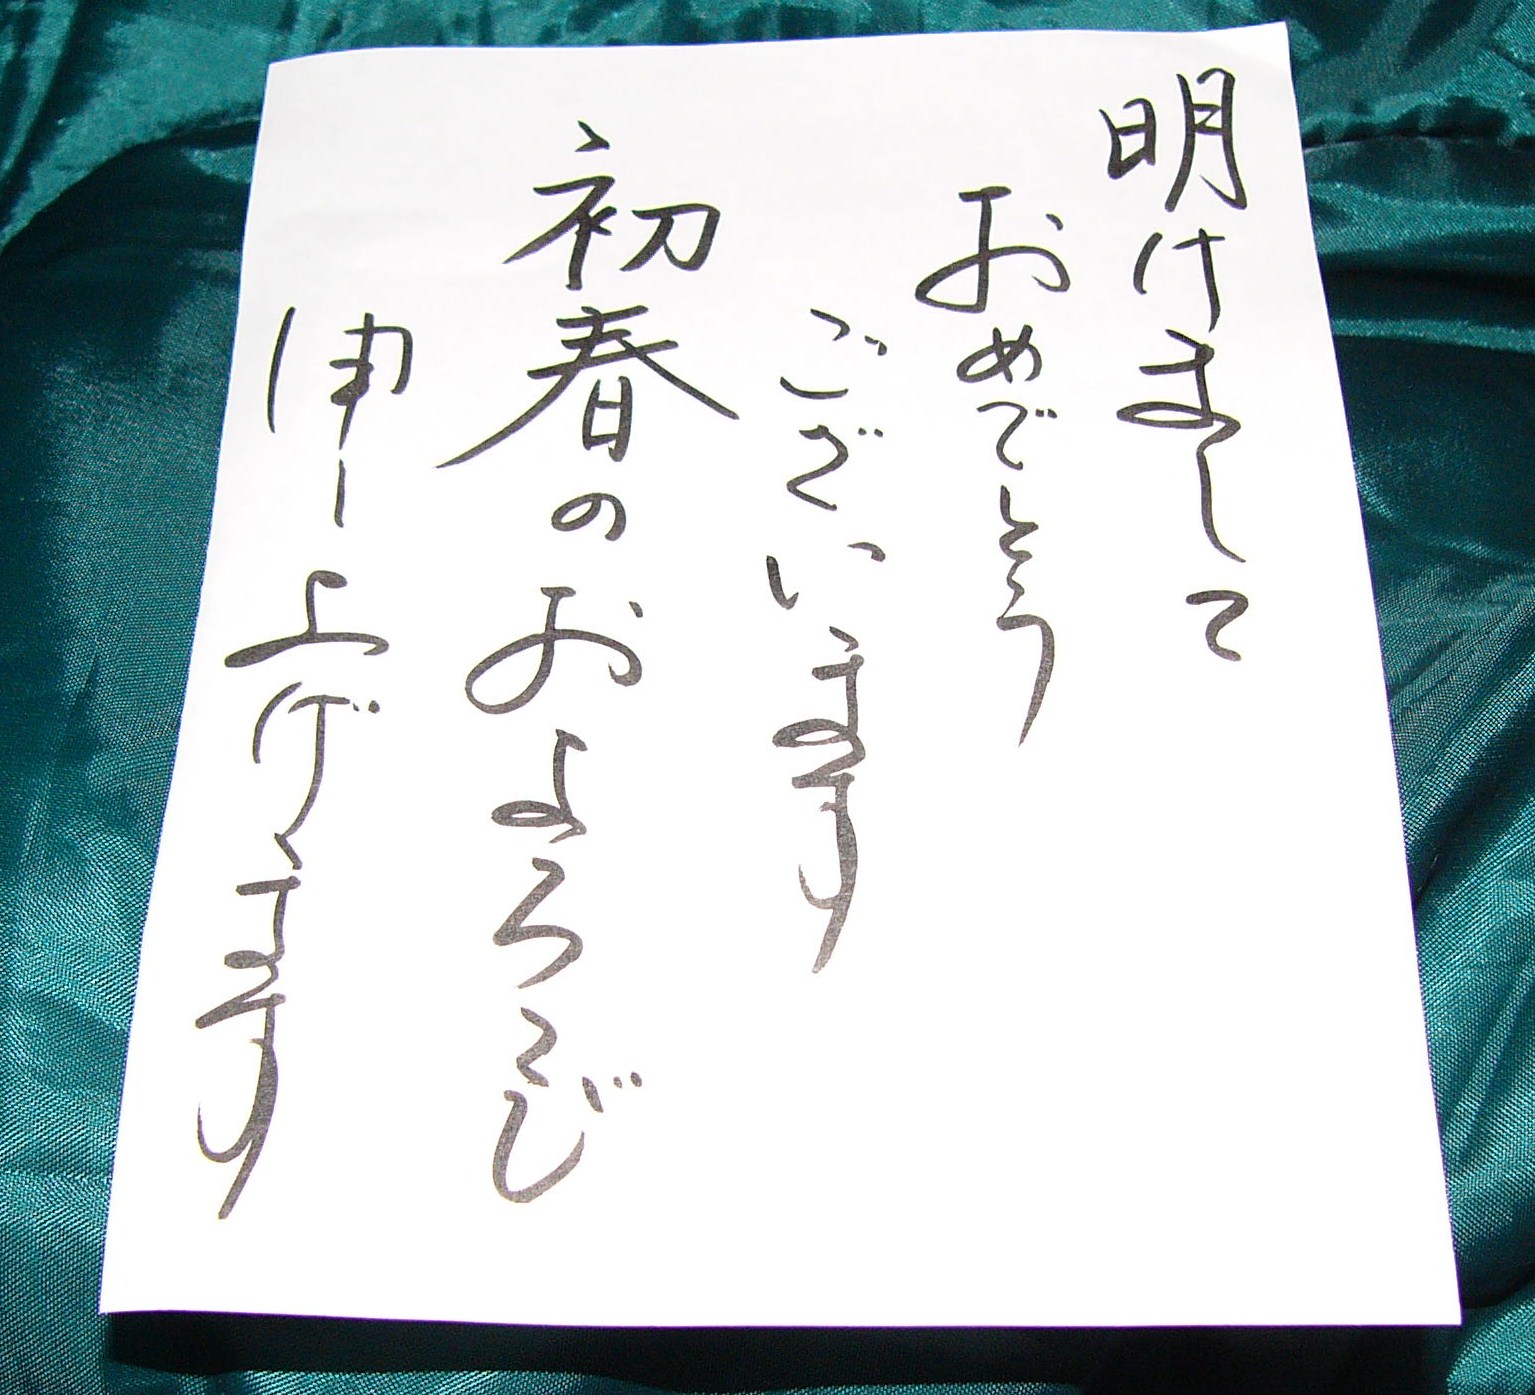 明けまして
おめでとう
ございます
初春のおよろこび
申し上げます